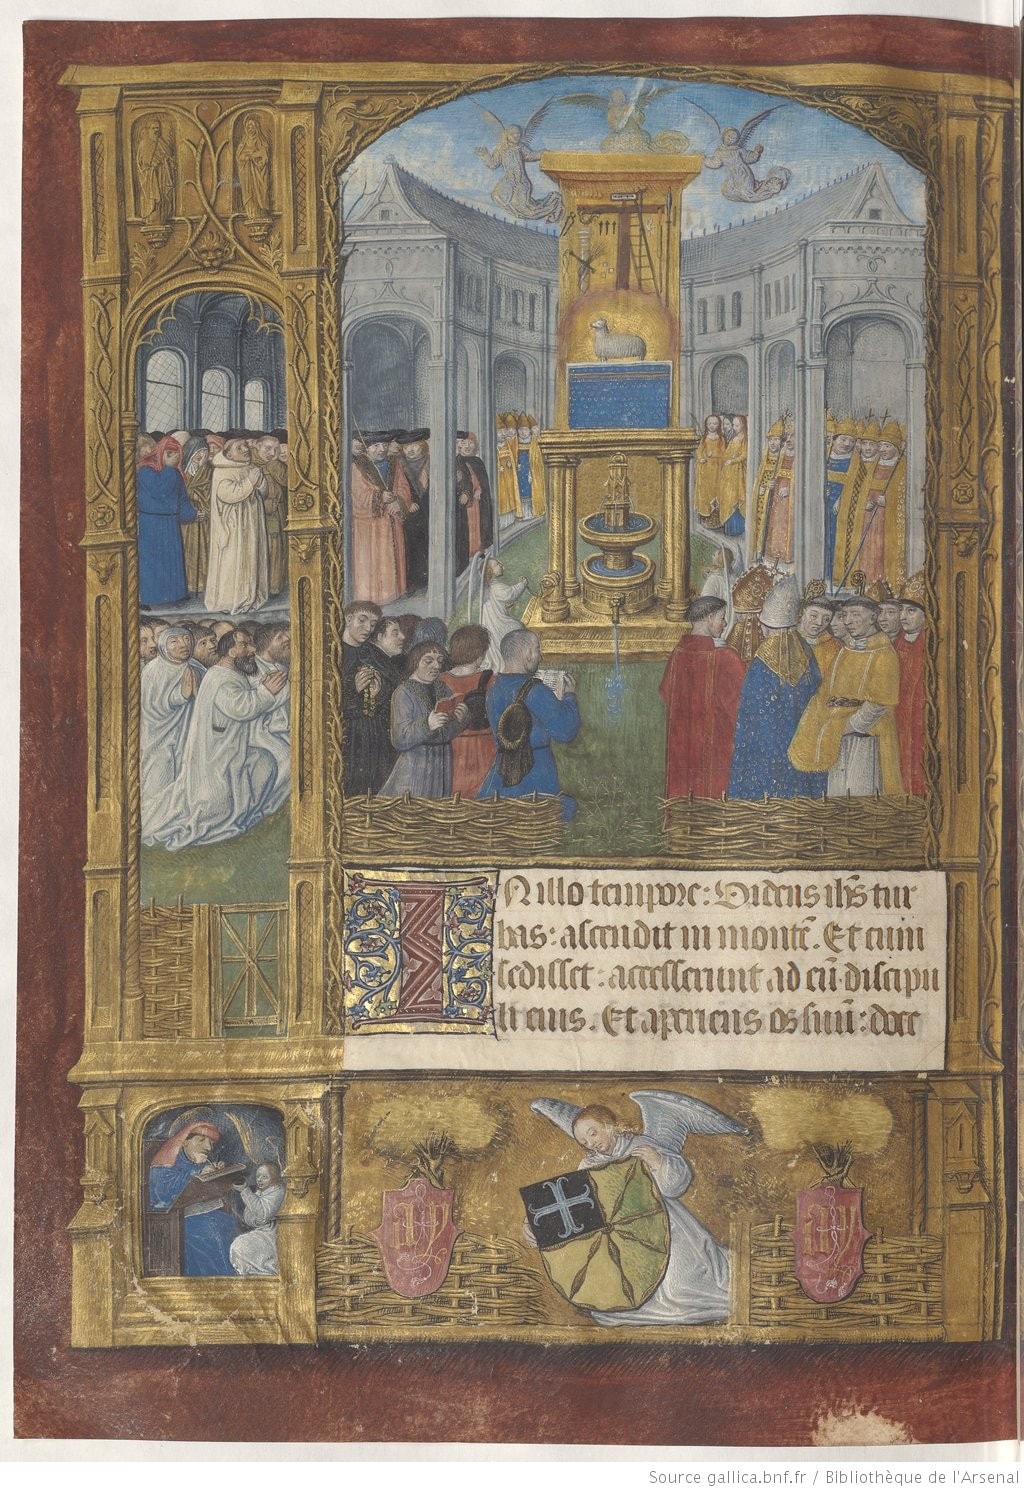 IN illo tempore: Videns ih̅s tur
bas: ascendit in monte̅. Et cum
sedisset: accesserunt ad eu̅ discipu
li eius. Et aperiens os suu̅: doce
Source gallica.bnf.fr / Bibliothèque de l'Arsenal